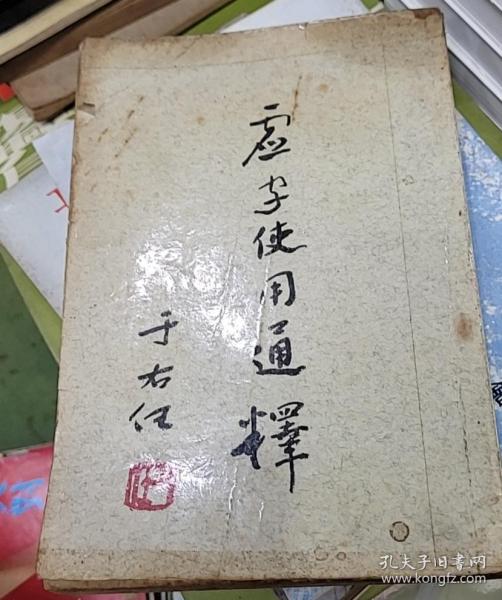 虚字使用通釋
于右任
孔夫子旧书网
www.kongfz.com